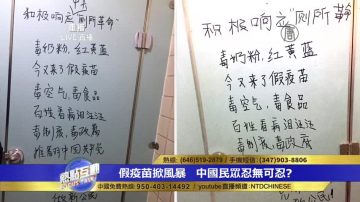 积极响应"厕所革命"
毒奶粉,红黄蓝
今又来了假疫苗
毒空气,毒食品
百姓看病泪汪汪
毒制度,毒政府
积极响应"厕所革命"
毒奶粉,红黄蓝
今又来了假疫苗
毒空气,毒食品
百姓看病泪汪汪
毒制度,毒政府
熱點互動
熱線: (646)519-2879 / 手機短信: (347)903-8806
假疫苗掀風暴 中國民眾忍無可忍?
中國免費熱線: 950-403-14492 / youtube直播頻道: NTDCHINESE